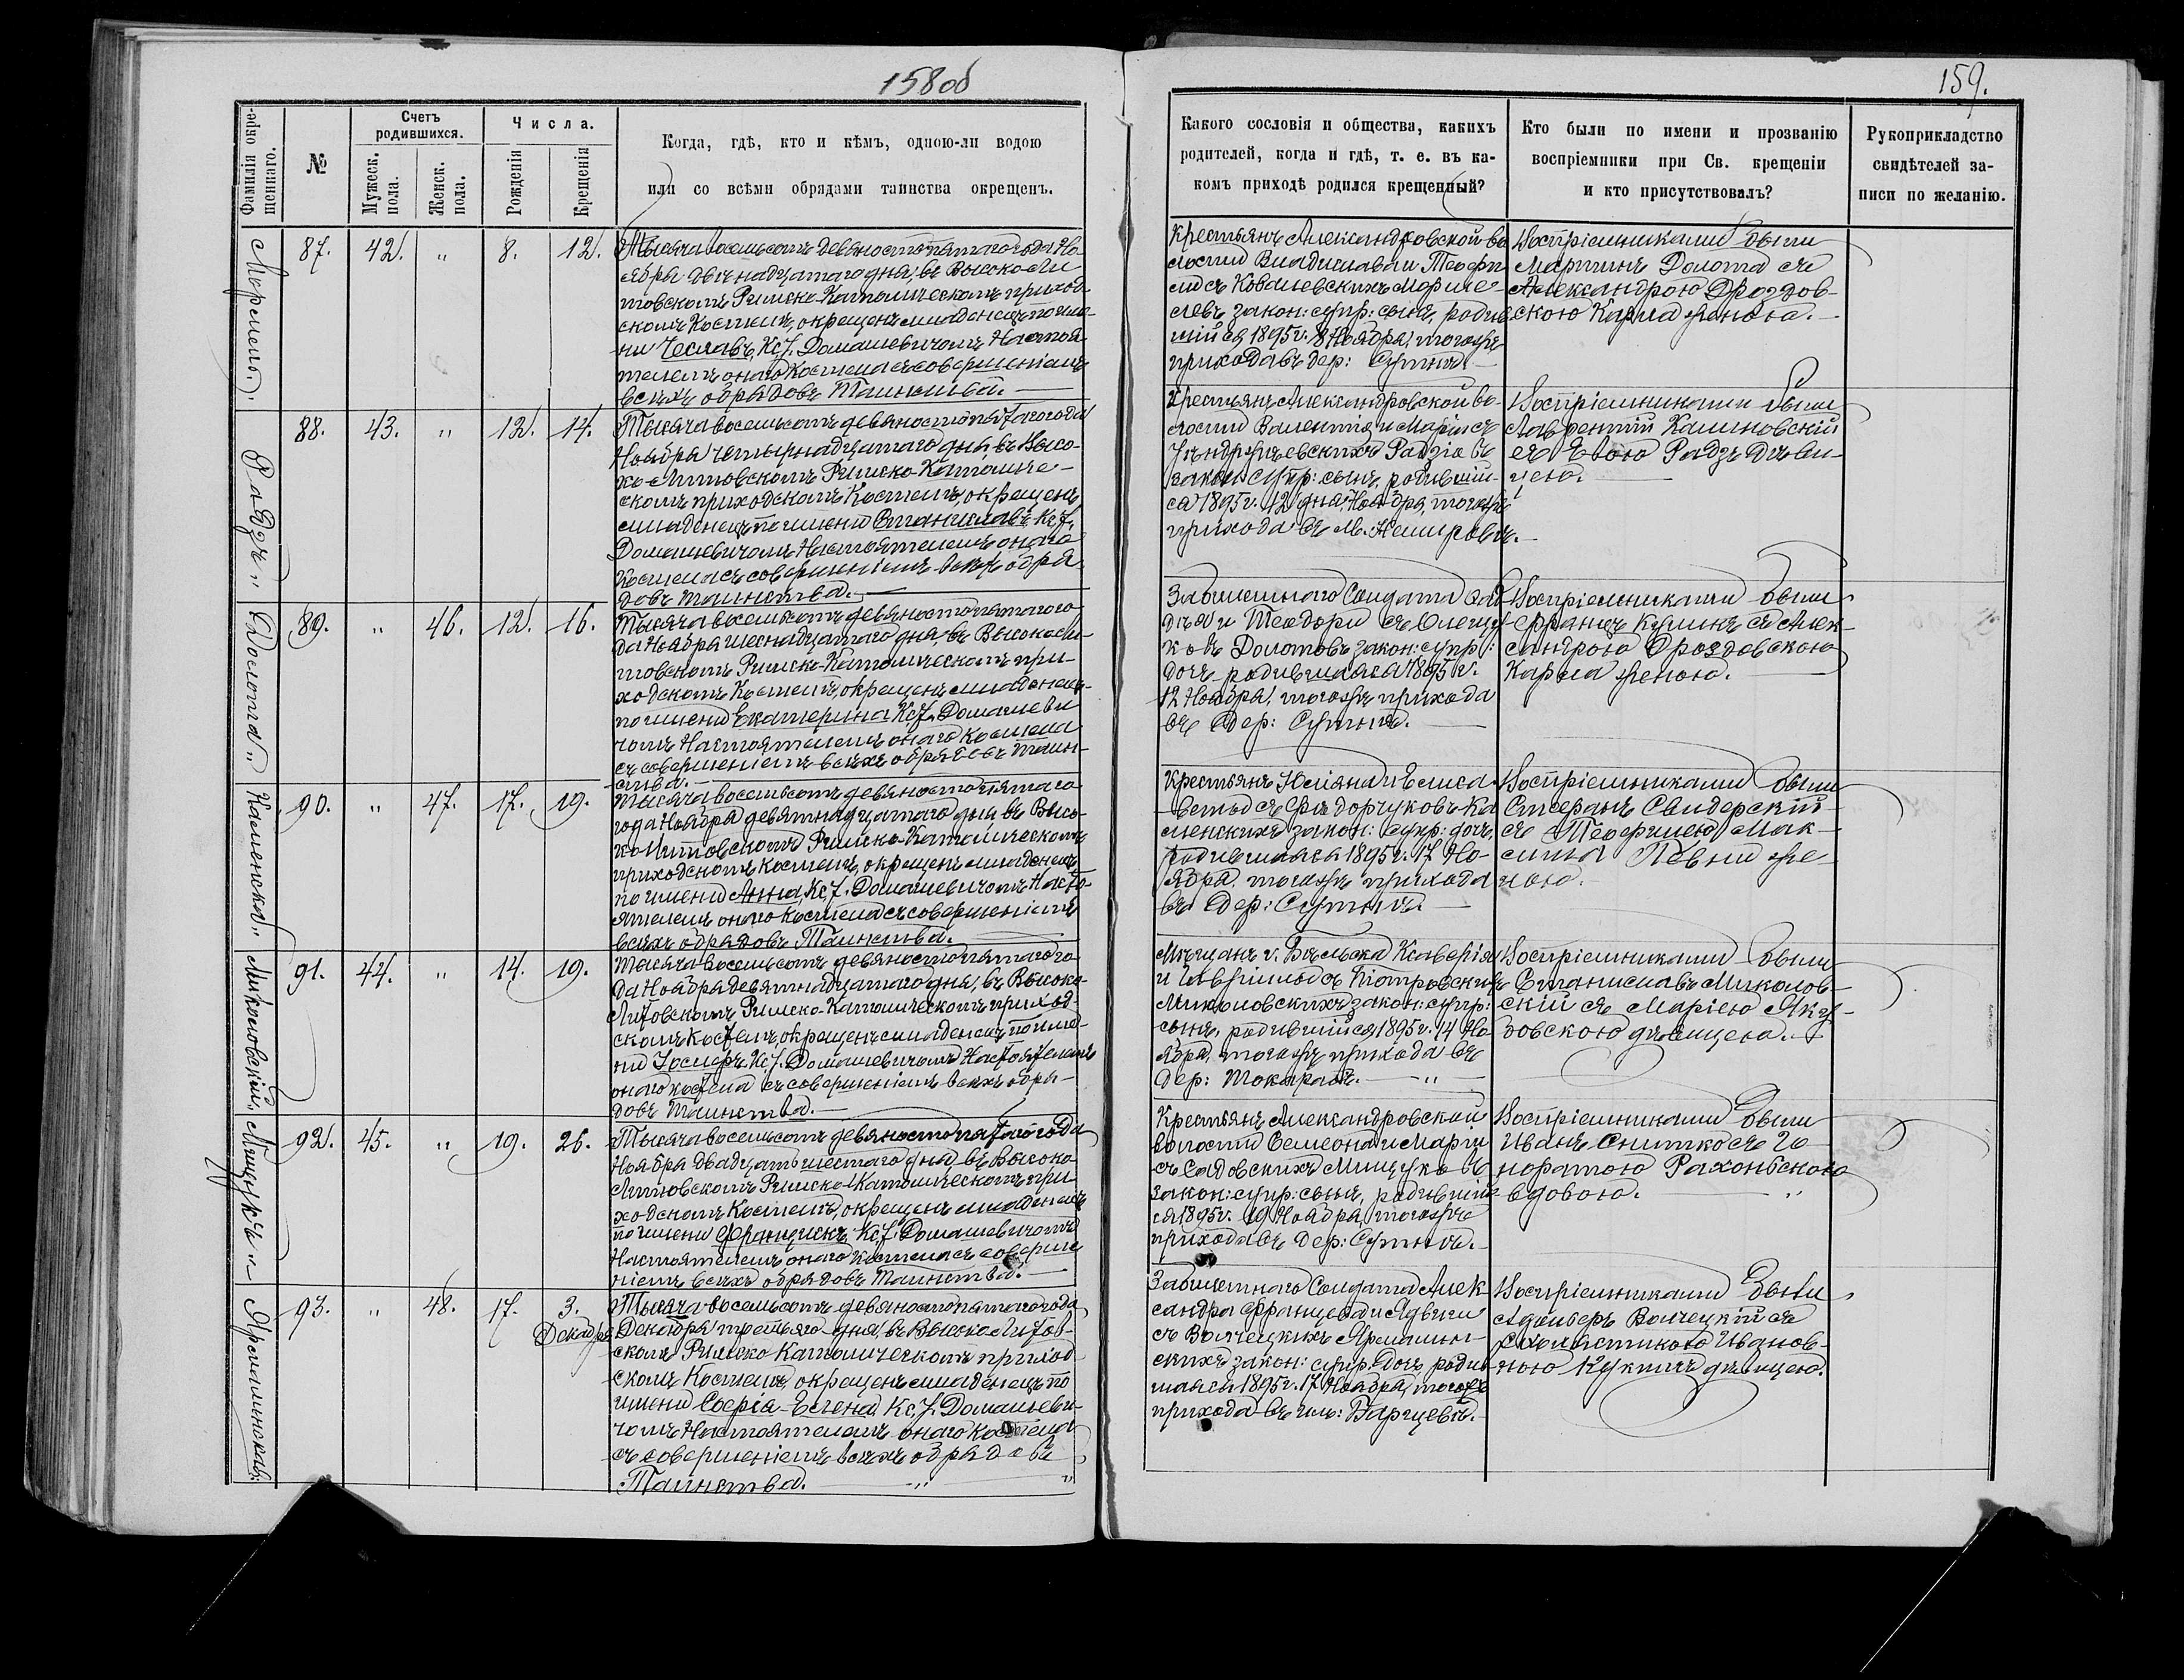 158об
Фамилія окре-
щеннаго.
№
Счетъ
родившихся.
Мужеск.
пола.
Женск.
пола.
Числа.
Рожденія
Крещенія
Когда, гдѣ, кто и кѣмъ, одною-ли водою
или со всѣми обрядами таинства окрещенъ.
87. 42. " 8. 12.
Тысяча восемьсотъ девяносто пятаго года Но-
ября двѣнадцатаго дня, въ Высоко-Ли
товскомъ Римско-Католическомъ приход-
скомъ Костелѣ, окрещенъ младенецъ по име-
ни Чеславъ, Кс. Домашевичомъ Настоя-
телемъ онаго Костела съ совершеніемъ
всѣхъ обрядовъ Таинства.
Радзь"
88. 43. " 12. 14.
Тысяча восемьсотъ девяносто пятаго года
Ноября четырнадцатаго дня, въ Высо-
ко-Литовскомъ Римско-Католиче-
скомъ приходскомъ Костелѣ, окрещенъ
младенецъ по имени Станиславъ, Кс.
Домашевичомъ Настоятелемъ онаго
Костела съ совершеніемъ всѣхъ обря
довъ Таинства.
Долота"
89. " 46. 12. 16.
Тысяча восемьсотъ девяносто пятаго го
да Ноября шеснадцатаго дня, въ Высоколи-
товскомъ Римско-Католическомъ при-
ходскомъ Костелѣ, окрещенъ младенецъ
по имени Екатерина Кс. Домашеви
чомъ Настоятелемъ онаго Костела
съ совершеніемъ всѣхъ обрядовъ Таин-
ства.
Каменска"
90. " 47. 17. 19.
Тысяча восемьсотъ девяносто пятаго
года Ноября девятнадцатаго дня въ Высо-
ко Литовскомъ Римско-Католическомъ
приходскомъ Костелѣ, окрещенъ младенецъ
по имени Анна, Кс. Домашевичомъ Насто-
ятелемъ онаго Костела съ совершеніемъ
всѣхъ обрядовъ Таинства.
Миколовскій,
91. 44. " 14. 19.
Тысяча восемьсотъ девяносто пятаго го-
да Ноября девятнадцатаго дня, въ Высоко-
Литовскомъ Римско-Католическомъ приход-
скомъ Костелѣ, окрещенъ младенецъ по име-
ни Іосифъ, Кс. Домашевичомъ Настоятелемъ
онаго костела съ совершеніемъ всѣхъ обря-
довъ Таинства.
Мищукъ"
92. 45. " 19. 26.
Тысяча восемьсотъ девяносто пятаго года
Ноября двадцать шестаго дня въ Высоко-
Литовскомъ Римско-Католическомъ при-
ходскомъ Костелѣ, окрещенъ младенецъ
по имени Францискъ, Кс. Домашевичомъ
Настоятелемъ онаго Костела съ соверше
ніемъ всѣхъ обрядовъ Таинства.
93. " 48. 17. 3.
Декабря
Тысяча восемьсотъ девяносто пятаго года
Декабря третьяго дня, въ Высоко Литов-
скомъ Римско Католическомъ приход-
скомъ Костелѣ, окрещенъ младенецъ по
имени Софія-Елена, Кс. Домашеви-
чомъ Настоятелемъ онаго Костела
съ совершеніемъ всѣхъ обрядовъ
Таинства. "
159.
Какого сословія и общества, какихъ
родителей, когда и гдѣ, т. е. въ ка-
комъ приходѣ родился крещенный?
Кто были по имени и прозванію
воспріемники при Св. крещеніи
и кто присутствовалъ?
Рукоприкладство
свидѣтелей за-
писи по желанію.
Крестьянъ Александровской во
лости Владислава и Теофи
лі съ Ковалевскихъ
закон: супр: сынъ, родив
шійся 1895 г. 8 Ноября, тогожъ
прихода въ дер:
Воспріемниками были
Мартинъ Долота съ
Александрою Дроздов-
скою Карла женою.
Крестьянъ Александровской во-
лости Валентія и Маріи съ
Радзіовъ
закон: супр: сынъ, родивший-
ся 1895 г. 12 дня, Ноября, тогожъ
прихода въ м. Немировѣ.
Воспріемниками были
Лаврентій Калиновскій
съ Евою Радзь дѣви-
цею.
Забилетнаго Солдата Фад
дѣя и Теодори съ
Долотовъ закон: супр:
дочь родившаяся 1895 г.
12 Ноября, тогожъ прихода
въ дер:
Воспріемниками были
Францъ съ Алек-
сандрою Дроздовскою
Карла женою.
Крестьянъ и Елиса-
веты съ Ѳедорчуковъ Ка
менскихъ закон: супр: дочь,
родившаяся 1895 г. 17 Но-
ября, тогожъ прихода
въ дер:
Воспріемниками были
Стефанъ Свидерскій
съ Теофилею Мак-
сима Певниц же-
ною.
Мѣщанъ г. Бѣльска Ксаверія
и съ Піотровскихъ
Миколовскихъ закон: супр:
сынъ, родившійся 1895 г. 14 Но
ября, тогожъ прихода въ
дер: Токарахъ. "
Воспріемниками были
Станиславъ Миколов-
скій съ Маріею Яку-
бовскою дѣвицею.
Крестьянъ Александровской
волости Семеона и Маріи
съ Садовскихъ Мищуковъ
закон: супр: сынъ, родившій
ся 1895 г. 19 Ноября, тогожъ
прихода въ дер:
Воспріемниками были
Иванъ Снитко съ Го-
норатою
вдовою. "
Забилетнаго Солдата Алек
сандра Францова и Ядвиги
съ Волчецкихъ
скихъ закон: супр: дочь родив
шаяся 1895 г. 17 Ноября, тогоже
прихода въ
Воспріемниками были
Адольфъ Волчецкій съ
Схоластикою Иванов-
ною дѣвицею.